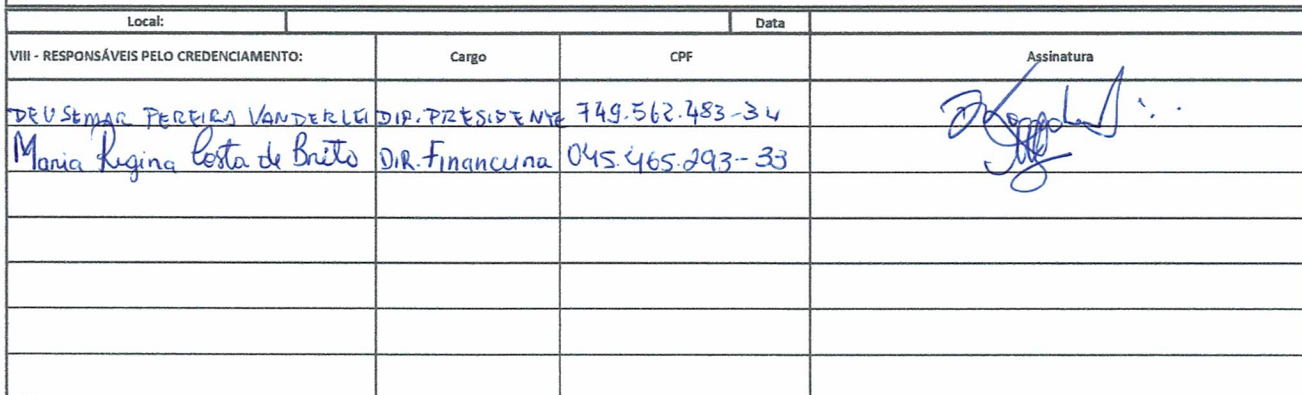 Local: Data
VIII - RESPONSÁVEIS PELO CREDENCIAMENTO: Cargo CPF Assinatura
DEUSEMAR PEREIRA VANDERLEI DIR. PRESIDENTE 749.562.483-34
Maria Regina Costa de Brito DIR. Financeira 045.465.293-33